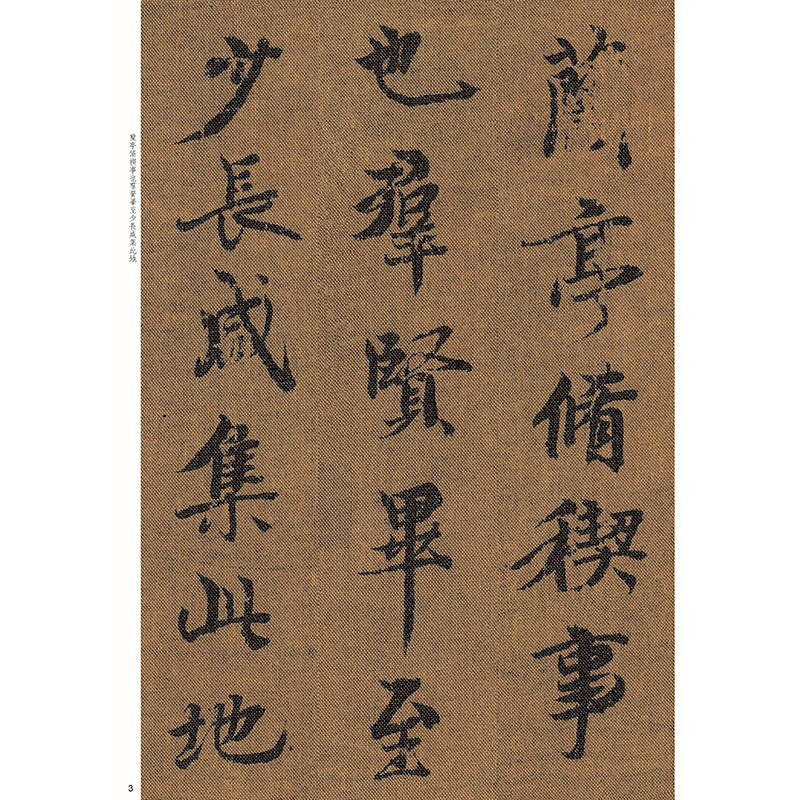 蘭亭脩稧事
也羣賢畢至
少長咸集此地
蘭亭脩稧事也羣賢畢至少長咸集此地
3